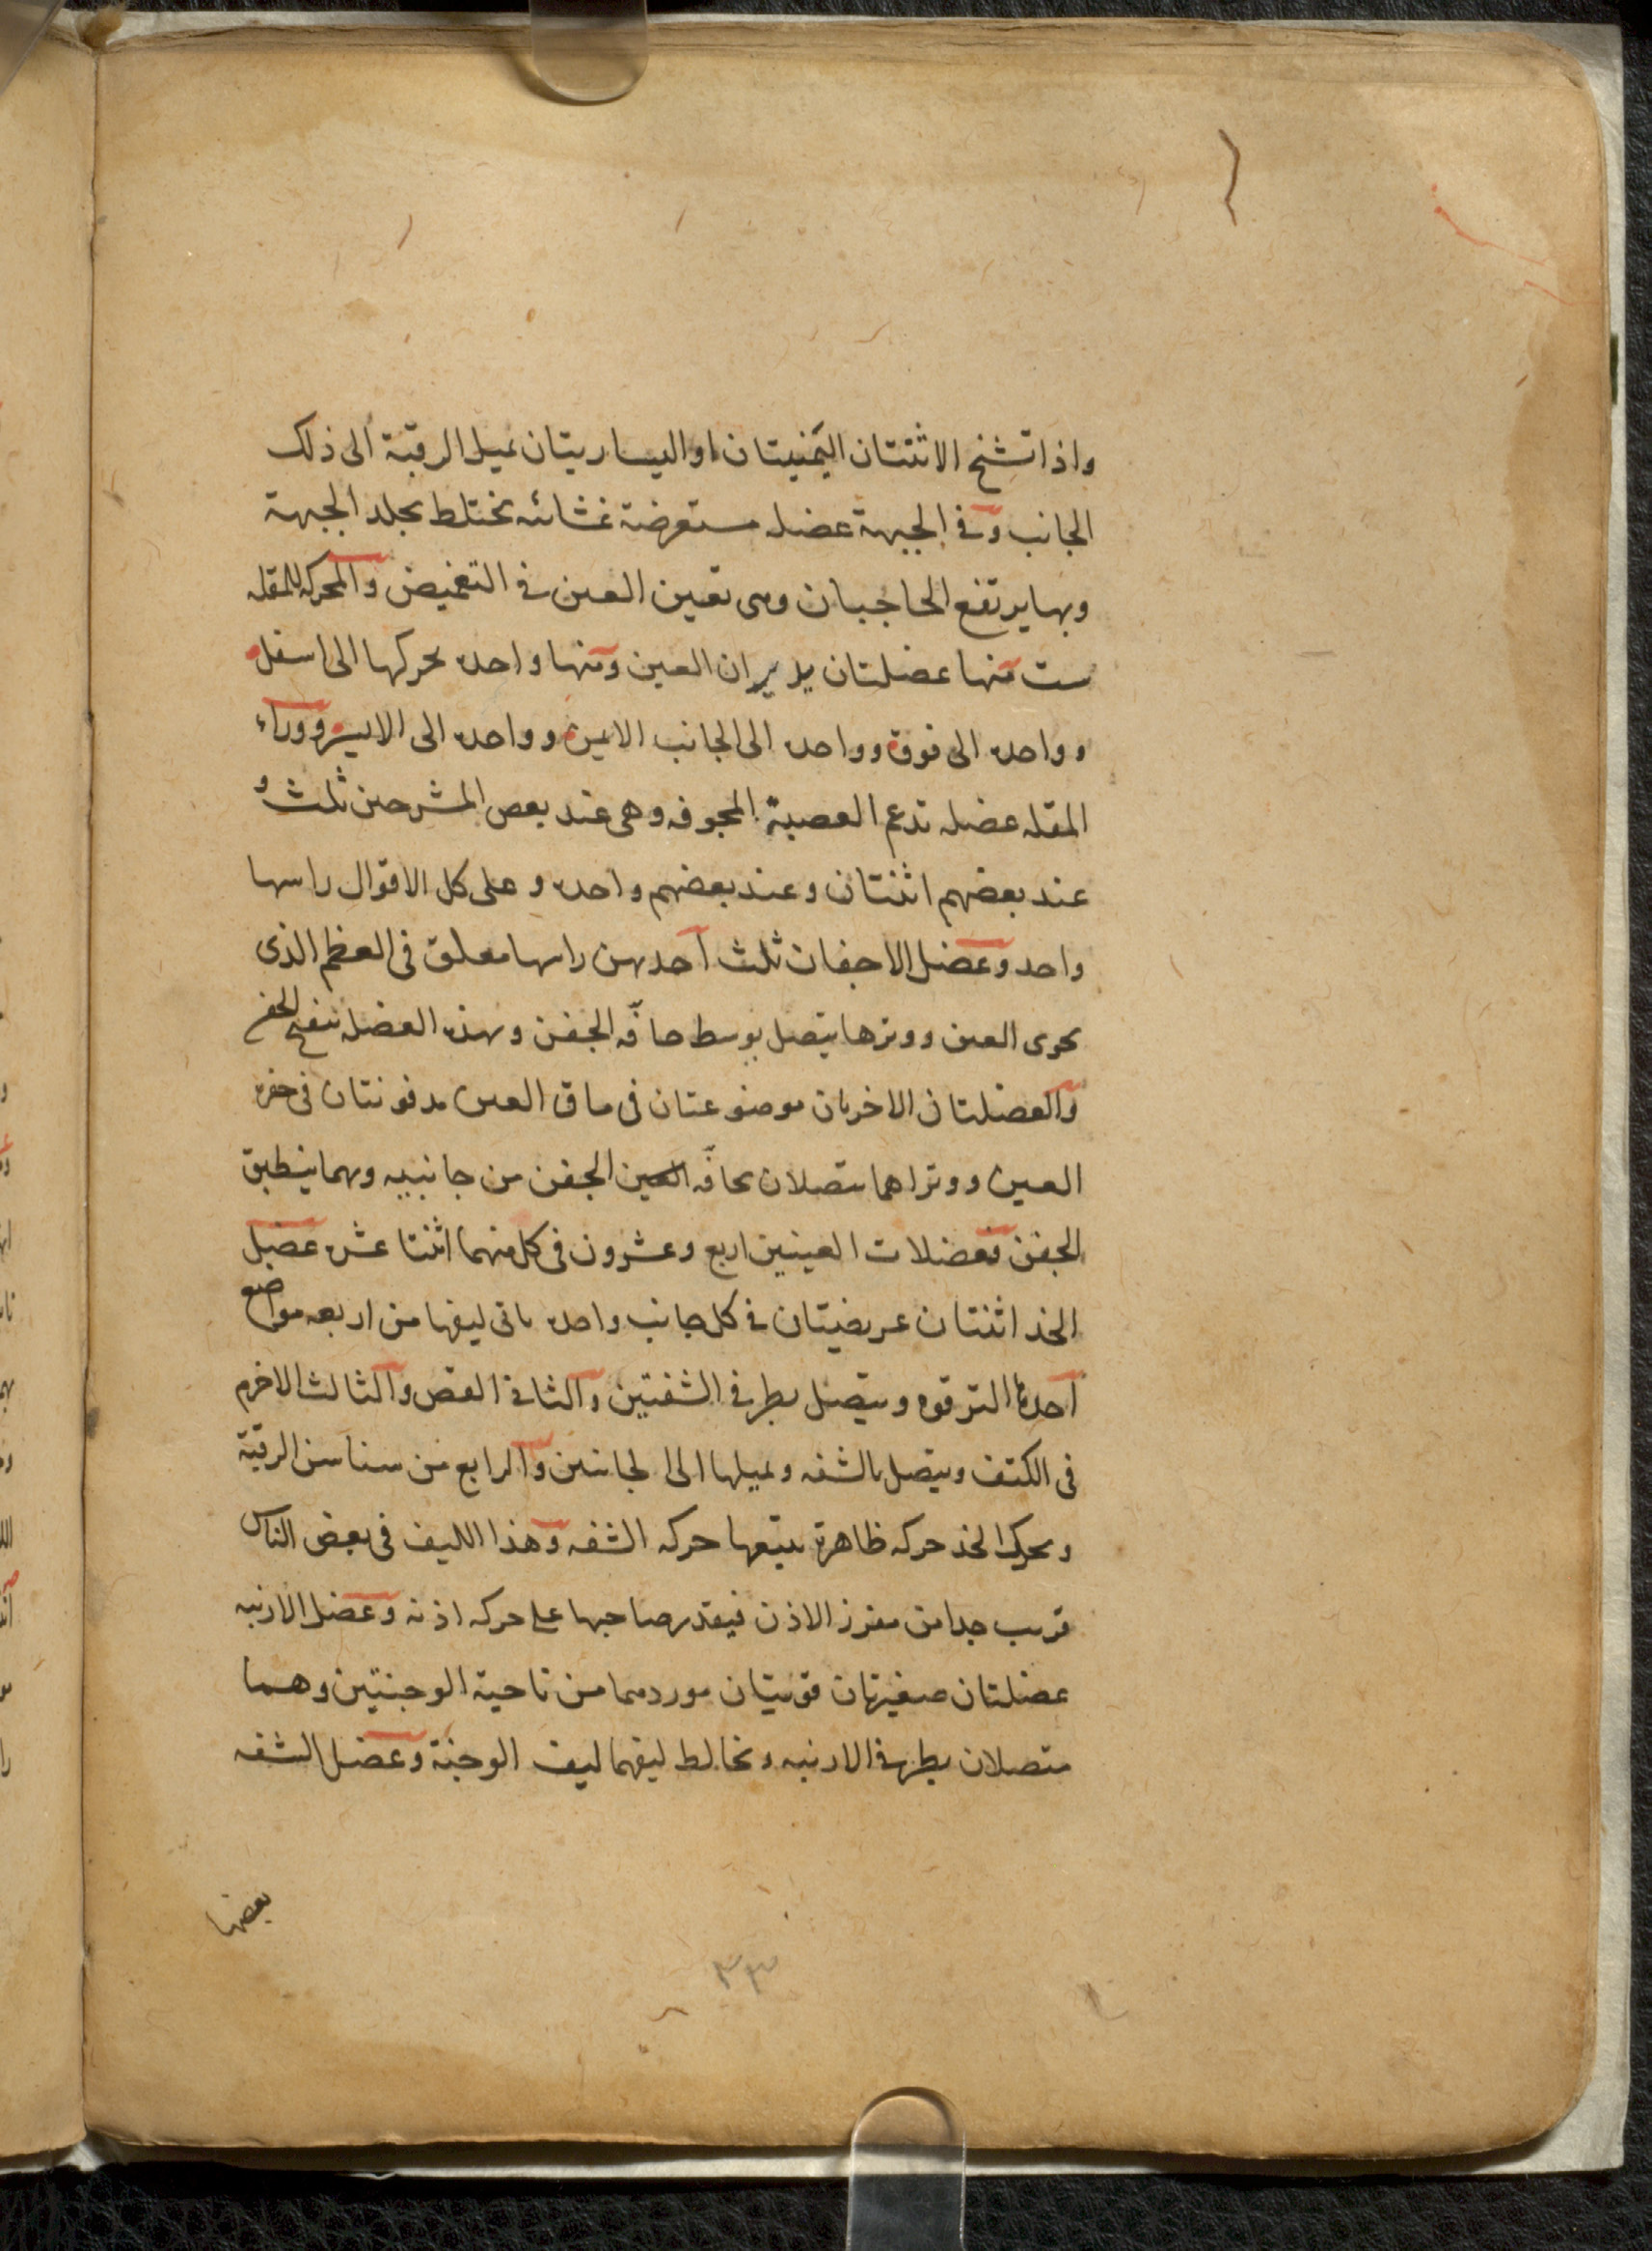 واذا تشنج الاثنتان اليمنيتان او اليساريتان يميل الرقبة الى ذلك
الجانب وفى الجبهة عضله مستعرضة غشائه يختلط بجلد الجبهة
وبها يرتفع الحاجبان وهى تعين العين فى التغميض والمحركه للمقله
ست منها عضلتان يديران العين ومنها واحده يحركها الى اسفل
وواحده الى فوق وواحده الى الجانب الايمن وواحده الى الايسر ووراء
المقله عضله تدعم العصبة المجوفه وهى عند بعض المشرحين ثلث و
عند بعضهم اثنتان وعند بعضهم واحده وعلى كل الاقوال راسها
واحد وعضل الاجفان ثلث احديهن راسها معلق فى العظم الذى
يحوى العين ووترها يتصل بوسط حافّه الجفن وبهذه العضله ينفتح الجفن
والعضلتان الاخريان موضوعتان فى ماق العين مدفونتان فى حفره
العين ووتراهما يتصلان بحافّه العين الجفن من جانبيه وبهما ينطبق
الجفن فعضلات العينين اربع وعشرون فى كل منهما اثنتا عشره عضل
الخد اثنتان عريضيتان فى كل جانب واحده ياتى ليفها من اربعه مواضع
احدها الترقوه ويتصل بطرفى الشفتين والثانى القص والثالث الاخرم
فى الكتف ويتصل بالشفه ويميلها الى الجانبين والرابع من سناسن الرقبة
ويحرك الخد حركه ظاهرة يتبعها حركه الشفه وهذا الليف فى بعض الناس
قريب جدا من مغرز الاذن فيقدر صاحبها على حركه اذنه وعضل الارنبه
عضلتان صغيرتان قويتان موردهما من ناحية الوجنتين وهما
متصلان بطرفى الارنبه ويخالط ليفهما ليف الوجنة وعضل الشفه
بعضها
٣٣